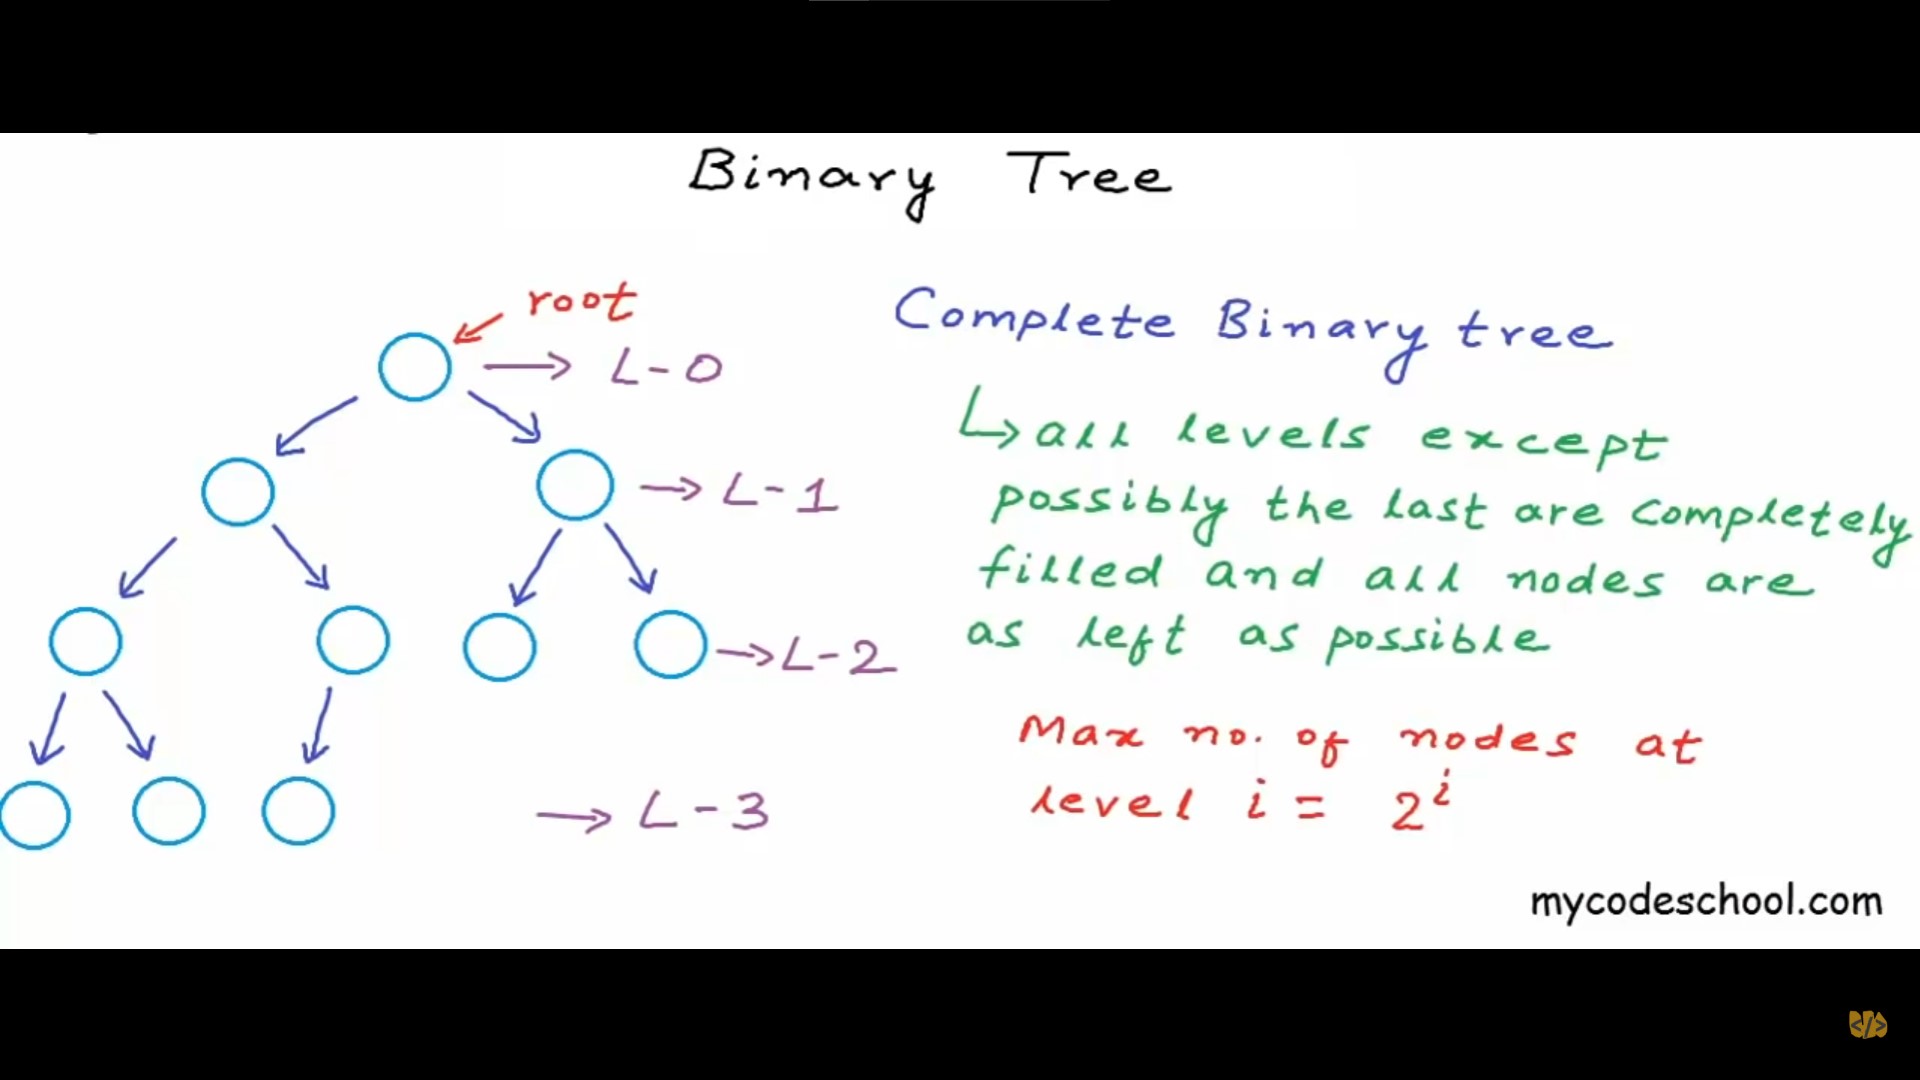 Binary Tree
root
L-0
L-1
L-2
L-3
Complete Binary tree
all levels except
possibly the last are completely
filled and all nodes are
as left as possible
Max no. of nodes at
level i = 2^i
mycodeschool.com
</>